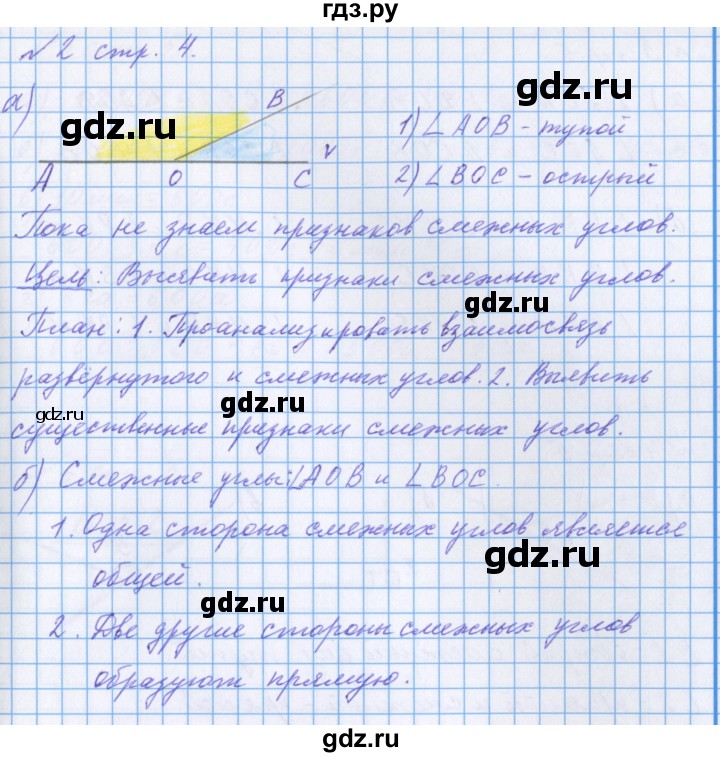 гдз.ру
№ 2 стр. 4.
gdz.ru
а)
B
gdz.ru
1) ∠AOB - тупой
v
A O C
2) ∠BOC - острый
Пока не знаем признаков смежных углов.
Цель: Выявить признаки смежных углов.
gdz.ru
План: 1. Проанализировать взаимосвязь
развёрнутого и смежных углов. 2. Выявить
gdz.ru
gdz.ru
существенные признаки смежных углов.
б) Смежные углы: ∠AOB и ∠BOC.
1. Одна сторона смежных углов является
gdz.ru
общей.
gdz.ru
2. Две другие стороны смежных углов
образуют прямую.
gdz.ru